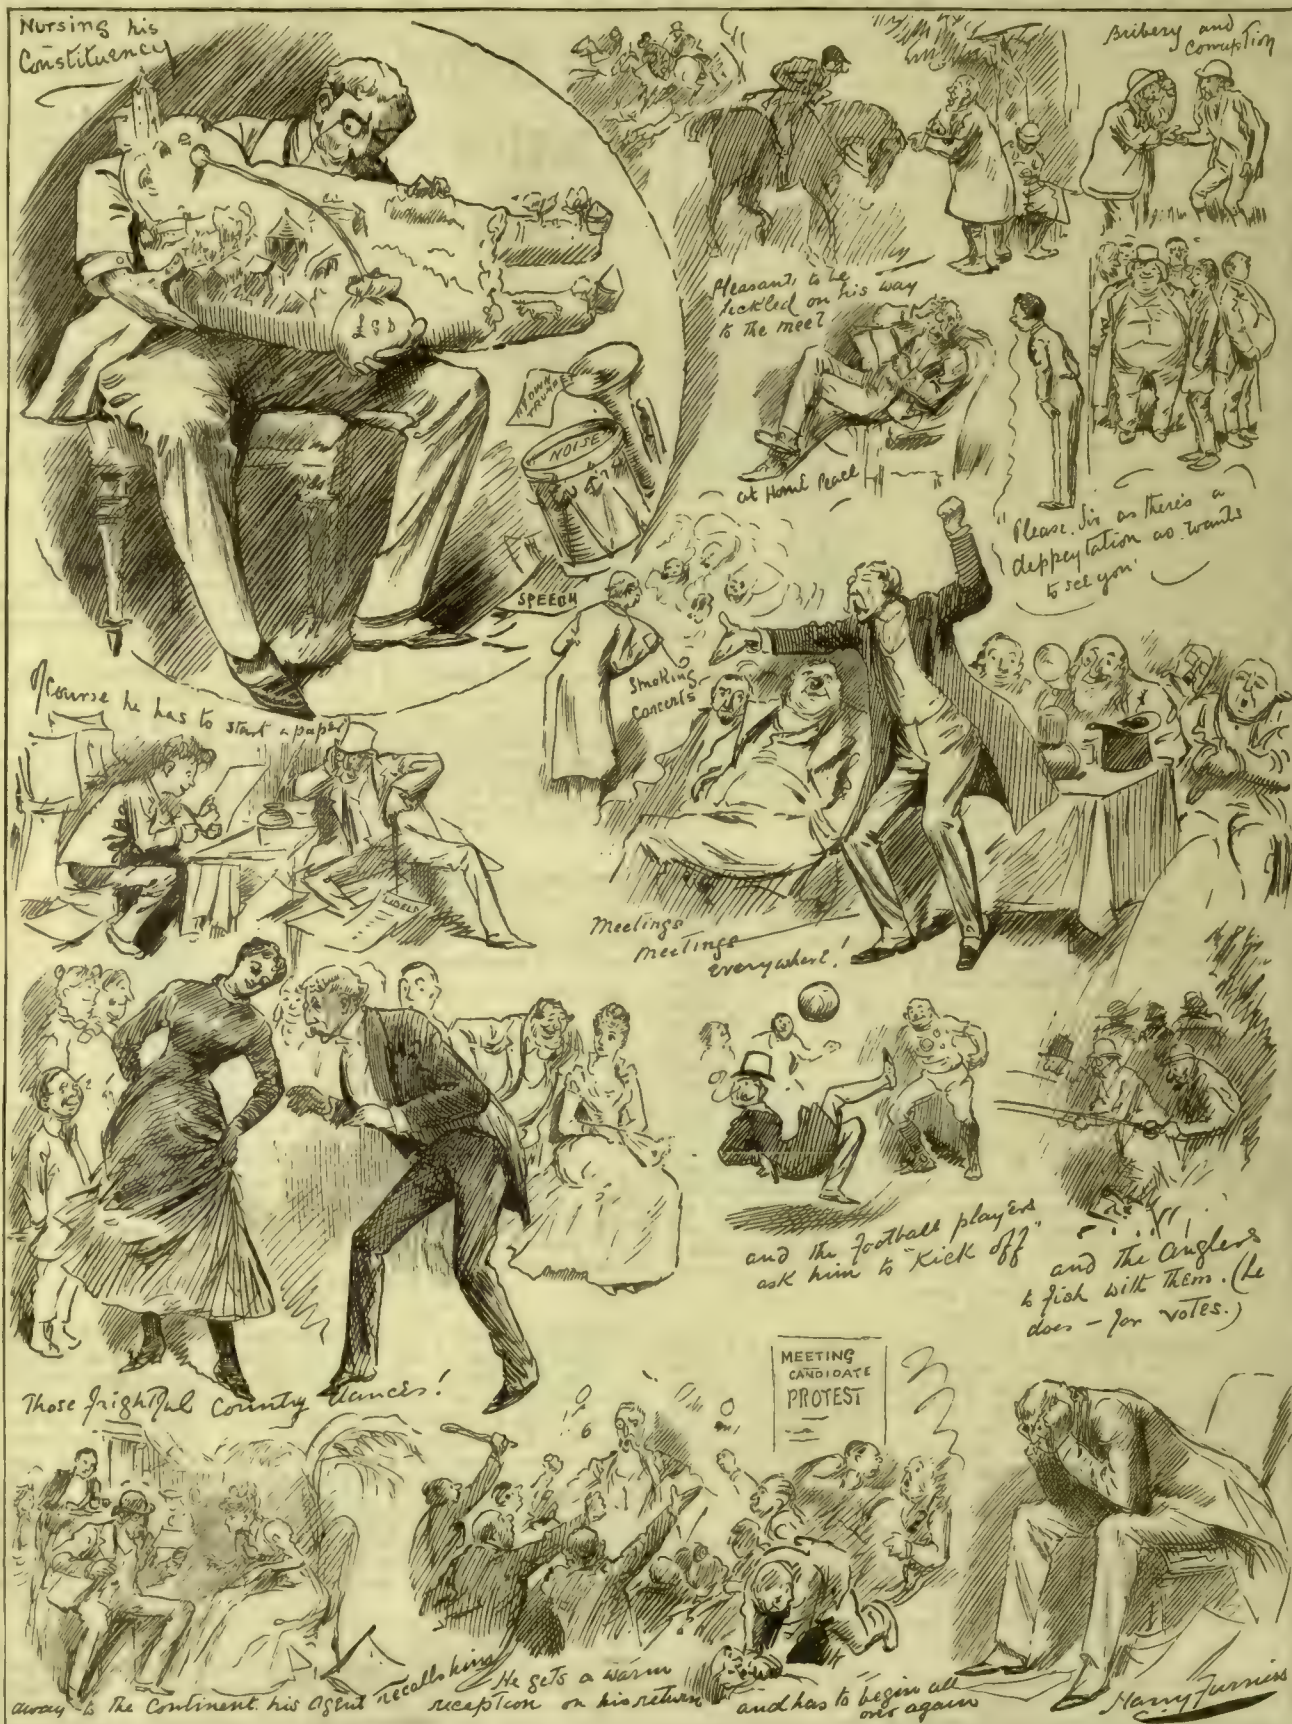 Nursing his
Constituency
Bribery and
Corruption
£ S D
Pleasant, to be
tickled on his way
to the meet
MY OWN
TRUMPET
NOISE
at Home Peace
"Please, Sir as there's a
deppeytation as wants
to see you"
SPEECH
Smoking
Concerts
Of Course he has to start a paper
LIBELS
Meetings
Meetings
everywhere!
and the Football players
ask him to "Kick off"
and the Anglers
to fish with them. (he
does – for votes.)
Those frightful Country dances!
MEETING
CANDIDATE
PROTEST
away to the Continent his Agent recalls him
He gets a warm
reception on his return
and has to begin all
over again
Harry Furniss